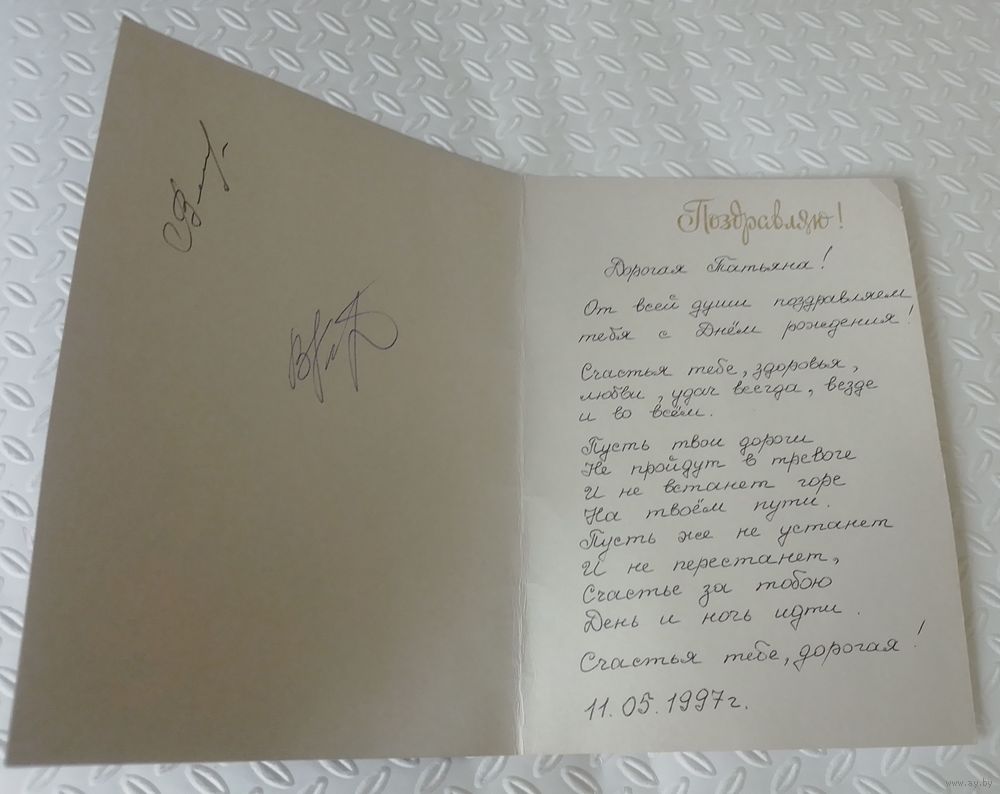 Поздравляю!
Дорогая Татьяна!
От всей души поздравляем
тебя с Днём рождения!
Счастья тебе, здоровья,
любви, удач всегда, везде
и во всём.
Пусть твои дороги
Не пройдут в тревоге
И не встанет горе
На твоём пути.
Пусть же не устанет
И не перестанет,
Счастье за тобою
День и ночь идти.
Счастья тебе, дорогая!
11.05.1997г.
www.ay.by